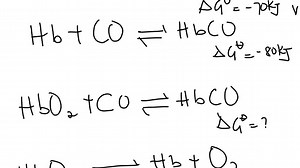 ΔG⦵ = -70kJ
Hb + CO ⇌ HbCO
ΔG⦵ = -80kJ
HbO₂ + CO ⇌ HbCO
ΔG⦵ = ?
Hb + O₂